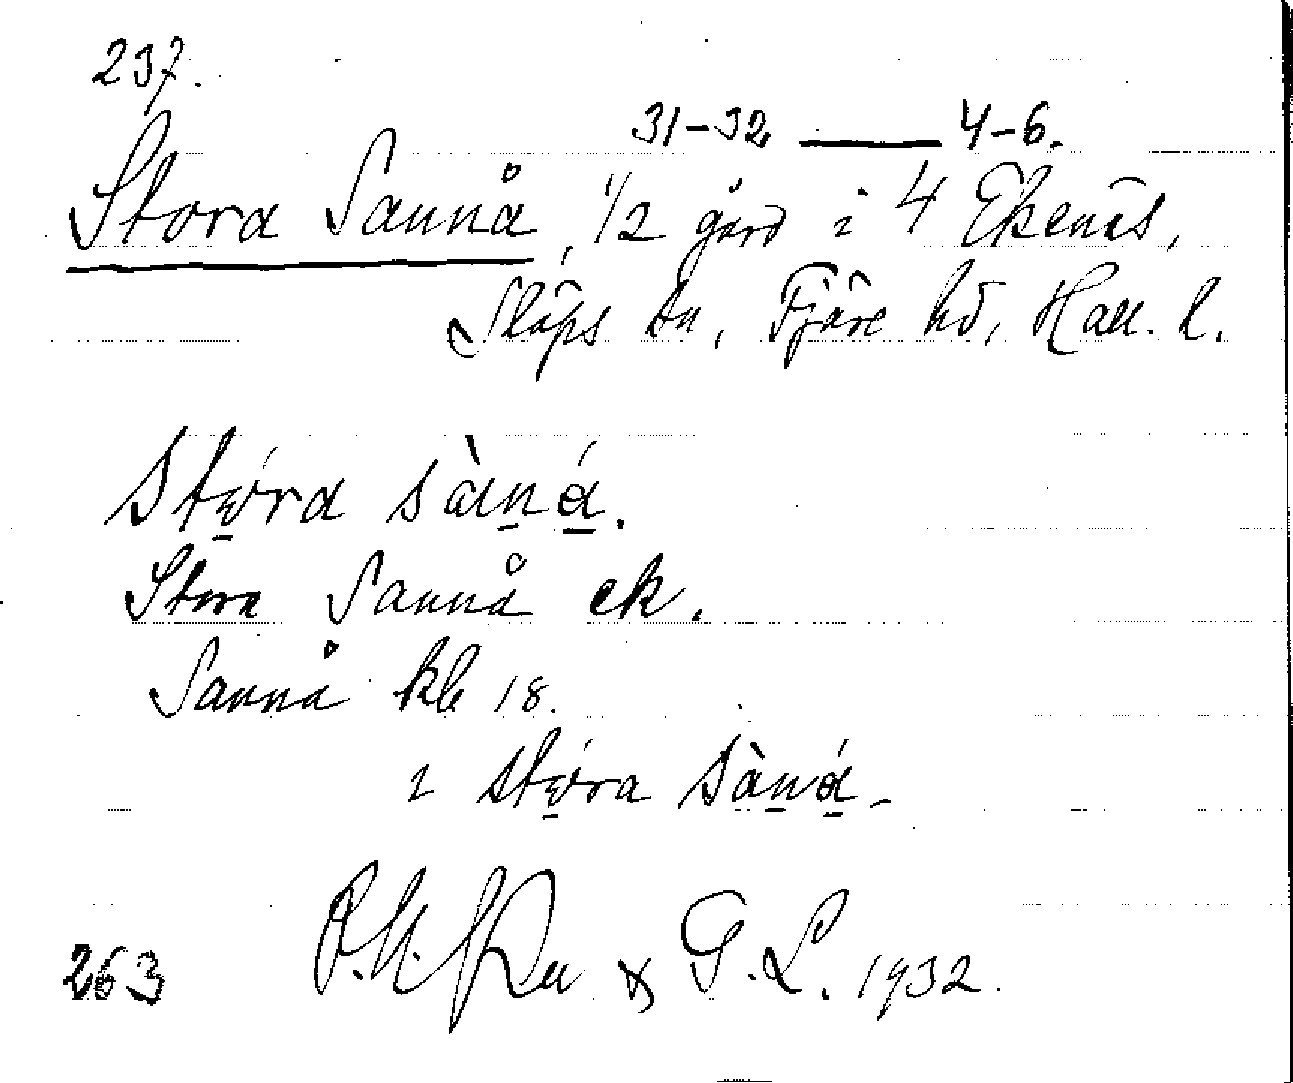 237.
31-32 — 4-6.
Stora Sannå, 1/2 gård i 4 Ekenäs,
Släps sn, Fjäre hd, Hall. l.
stǫ́ra sàṉá̱.
Stora Sannå ek.
Sannå kb 18.
i stǫ́ra sàṉá̱ -
& G. L. 1932.
263